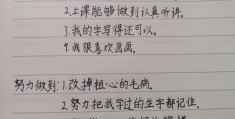 2.上课能够做到认真听讲。
3.我的字写得还可以。
4.我很喜欢画画。
努力做到:1.改掉粗心的毛病。
2.努力把我学过的生字都记住。